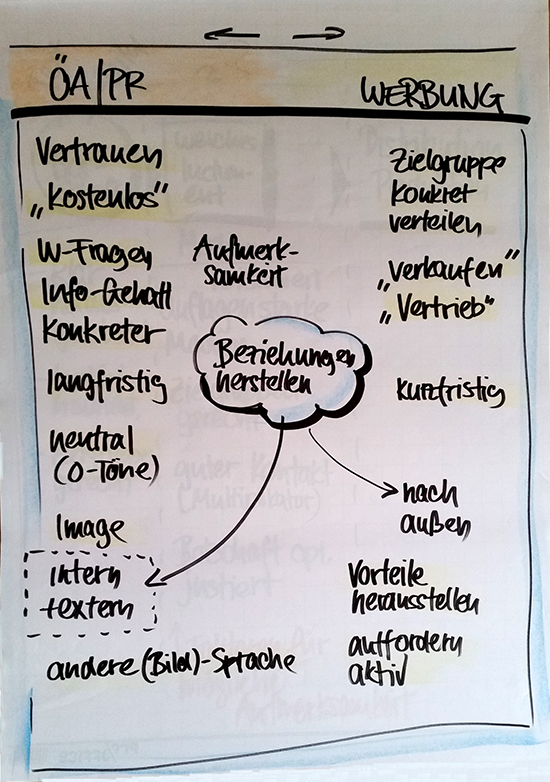 ÖA/PR
WERBUNG
Vertrauen
„Kostenlos"
W-Fragen
Info-Gehalt
Konkreter
langfristig
neutral
(O-Töne)
Image
intern
+extern
andere (Bild)-Sprache
Aufmerk-
samkeit
Beziehungen
herstellen
Zielgruppe
konkret
verteilen
„verkaufen"
„Vertrieb"
kurzfristig
nach
außen
Vorteile
herausstellen
auffordern
aktiv